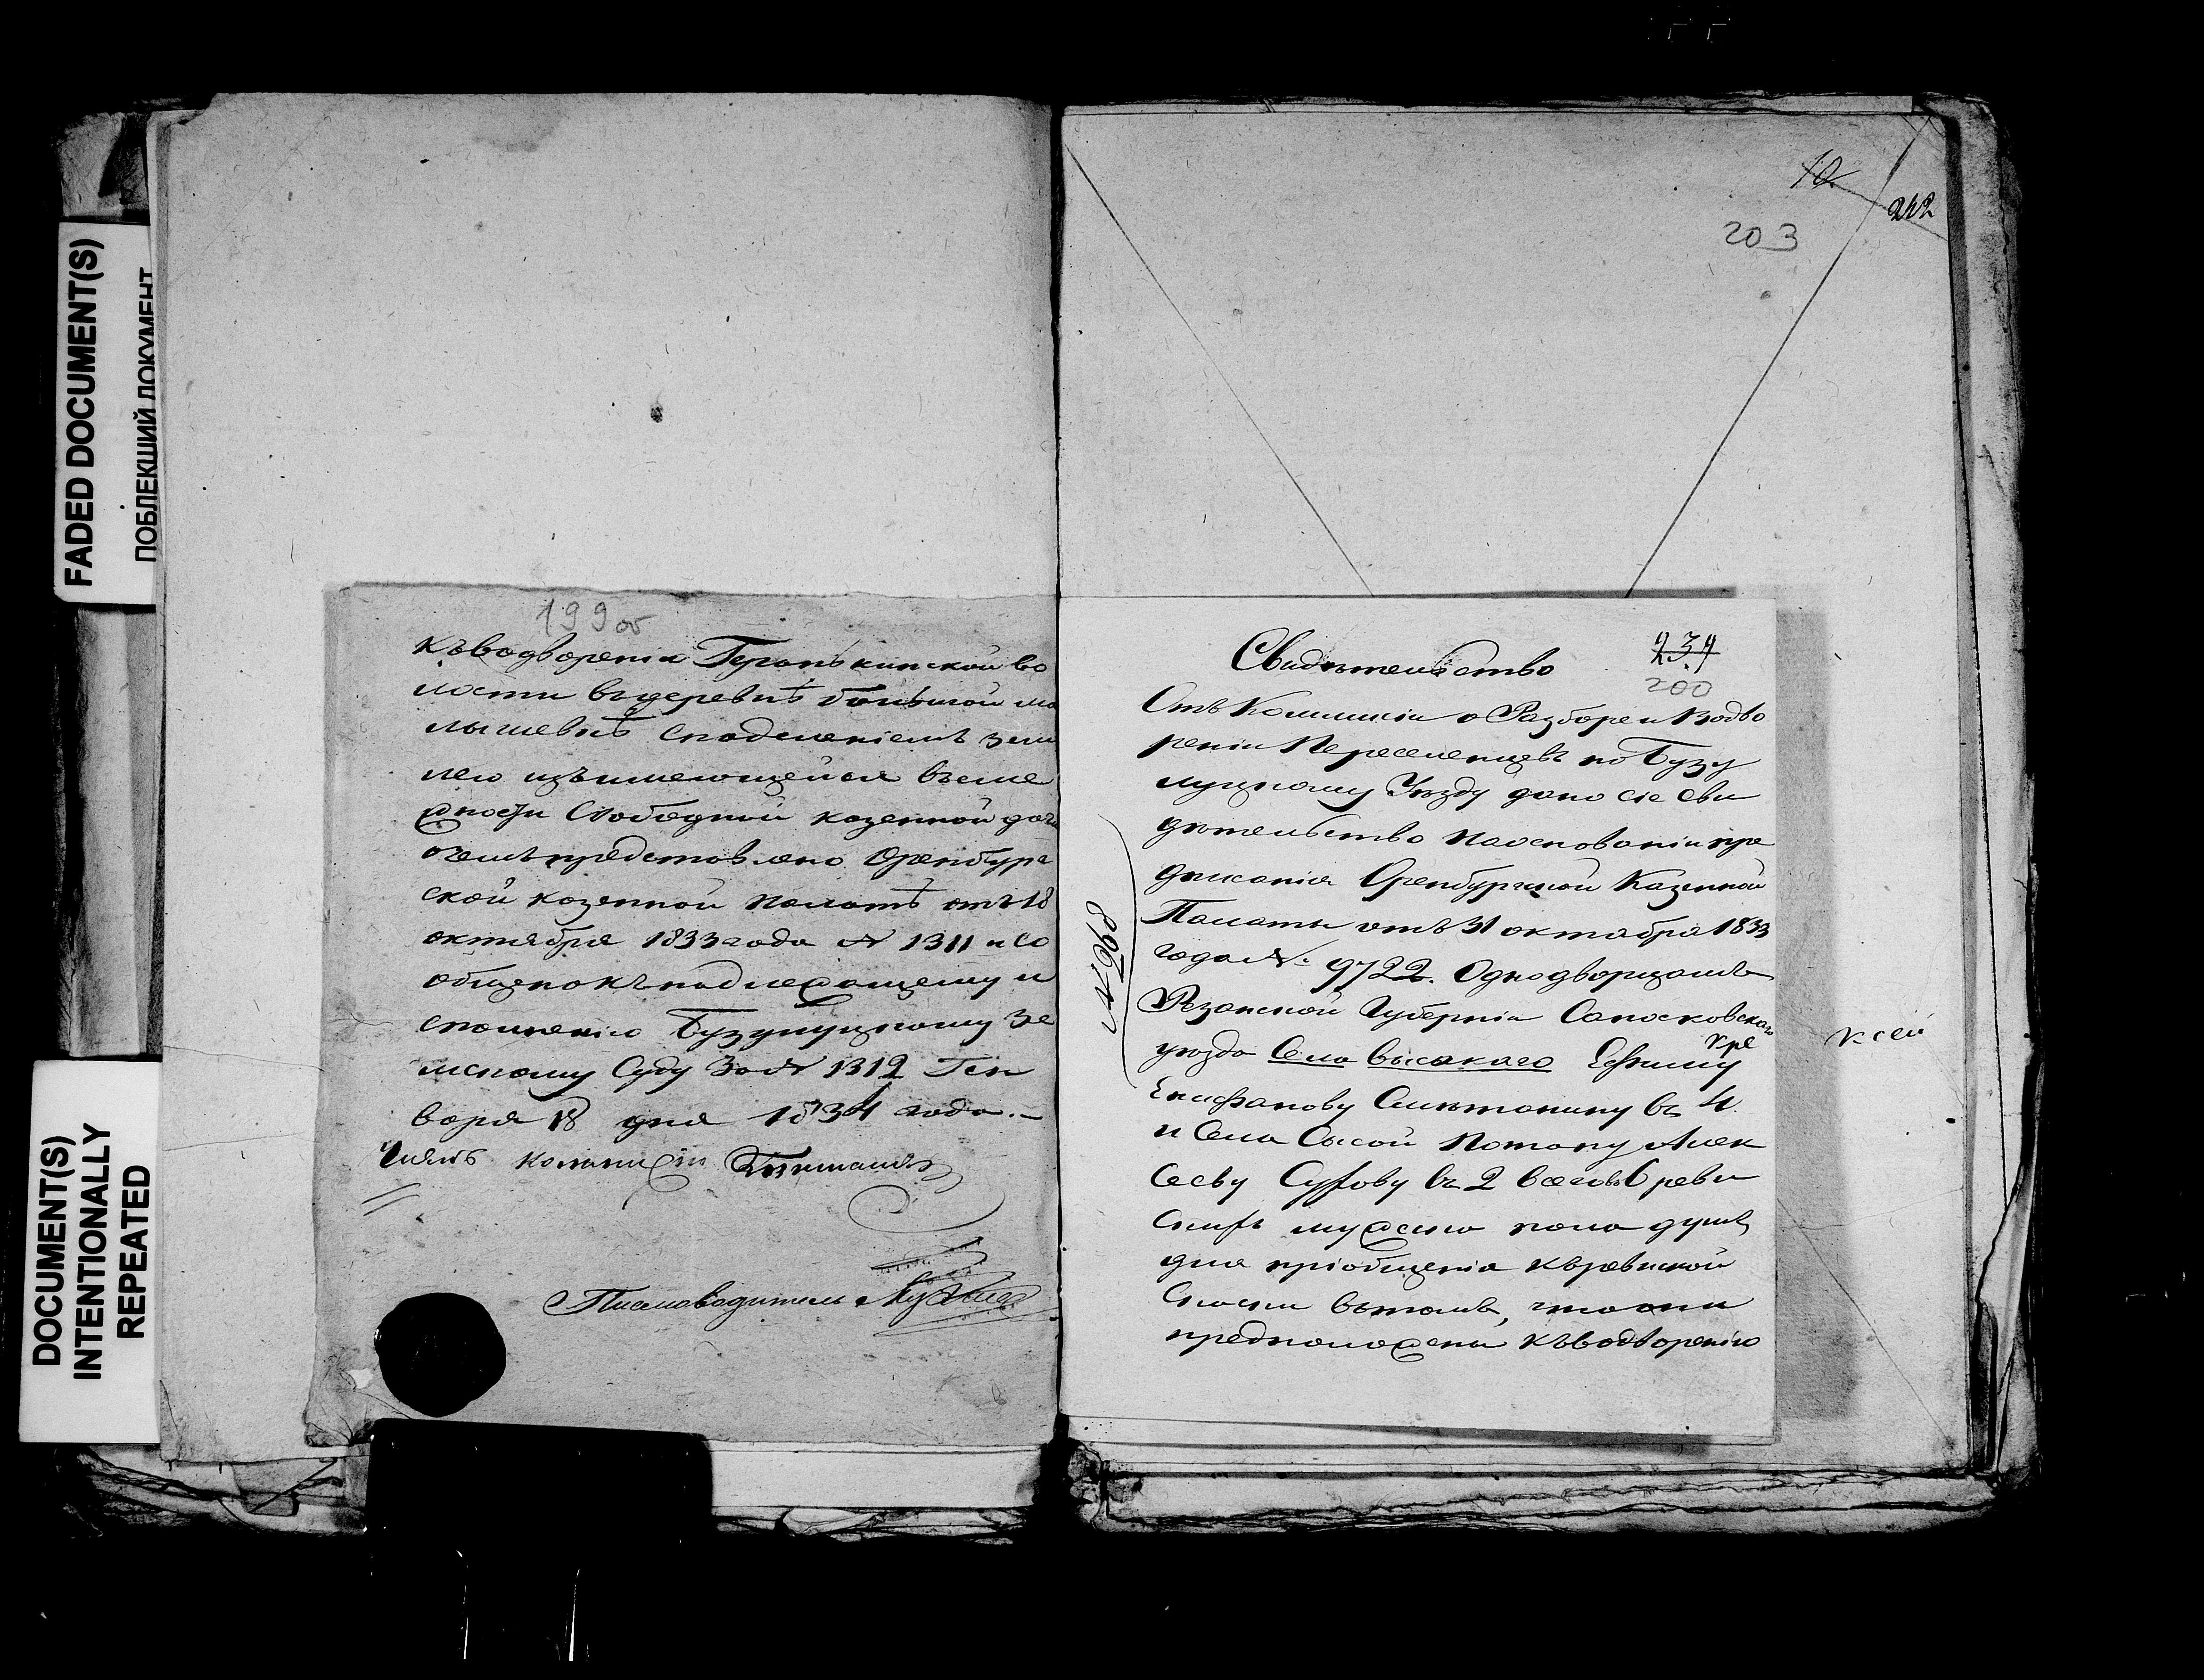 FADED DOCUMENT(S)
ПОБЛЕКШИЙ ДОКУМЕНТ
DOCUMENT(S)
INTENTIONALLY
REPEATED
199 об
къводворенiи во
лости въдеревнѣ большой ма
лышевкѣ снаделенiемъ зем
лею изъимеющейся въсме
жности Свободной казенной дачи
очемъпредставлено Оренбург
ской казенной палатѣ отъ 18
октября 1833 года № 1311 и со
общено къ надлежащему и
сполненiю Бузулуцкому Зе
мскому Суду За № 1312 Ген
варя 18 дня 1834 года.-
Членъ комми(сiи
Письмоводитель
10
242
203
239
200
Свидѣтельство
Отъ Коммисiи о Разборе и Водво
ренiи Переселенцевъ по Бузу
луцкому Уѣзду дано сiе сви
дѣтельство наоснованiи пре
дписанiя Оренбургской Казенной
Палаты отъ 31 октября 1833
года № 9722. Однодворцамъ
Резанской Губернiи Сапожковскаго
уѣзда Села высокаго Ефиму
Епифанову въ 4.
и Села Сысой Потапу Алек
сееву въ 2 всего 6 реви
скихъ мужска пола душъ
для прiобщенiя къревиской
Скаски вътомъ, что они
предположены къводворенiю
№ 968
к сей